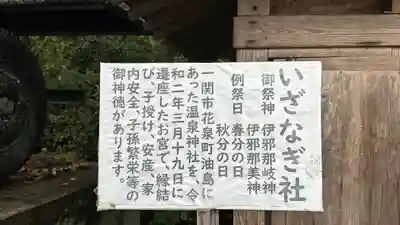 いざなぎ社
御祭神 伊邪那岐神
伊邪那美神
例祭日 春分の日
秋分の日
一関市花泉町油島に
あった温泉神社を、令
和二年三月十九日に
遷座したお宮で、縁結
び、子授け、安産、家
内安全、子孫繁栄等の
御神徳があります。